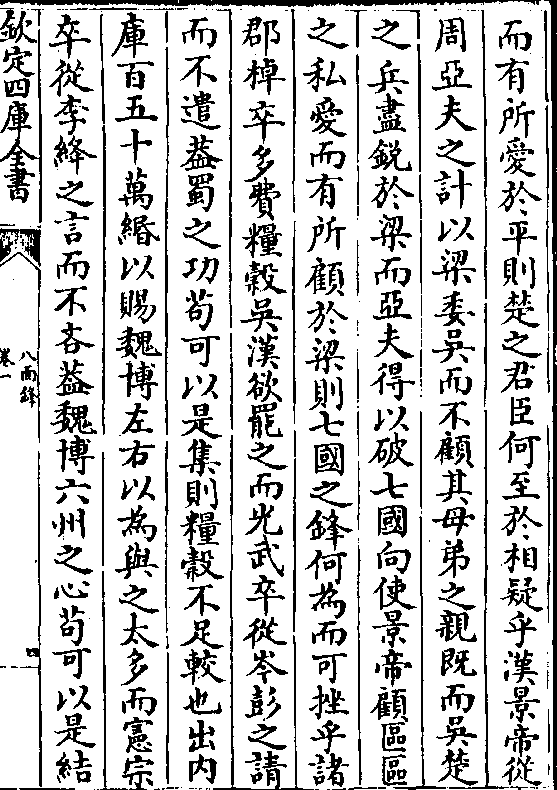 而有所愛於平則楚之君臣何至於相疑乎漢景帝從
周亞夫之計以梁委吳而不顧其母弟之親既而吳楚
之兵盡鋭於梁而亞夫得以破七國向使景帝顧區區
之私愛而有所顧於梁則七國之鋒何為而可挫乎諸
郡棹卒多費糧糓吳漢欲罷之而光武卒從岑彭之請
而不遣葢蜀之功茍可以是集則糧糓不足較也出内
庫百五十萬緡以賜魏博左右以為與之太多而憲宗
卒從李絳之言而不吝葢魏博六州之心茍可以是結
欽定四庫全書
八面鋒
卷一
四